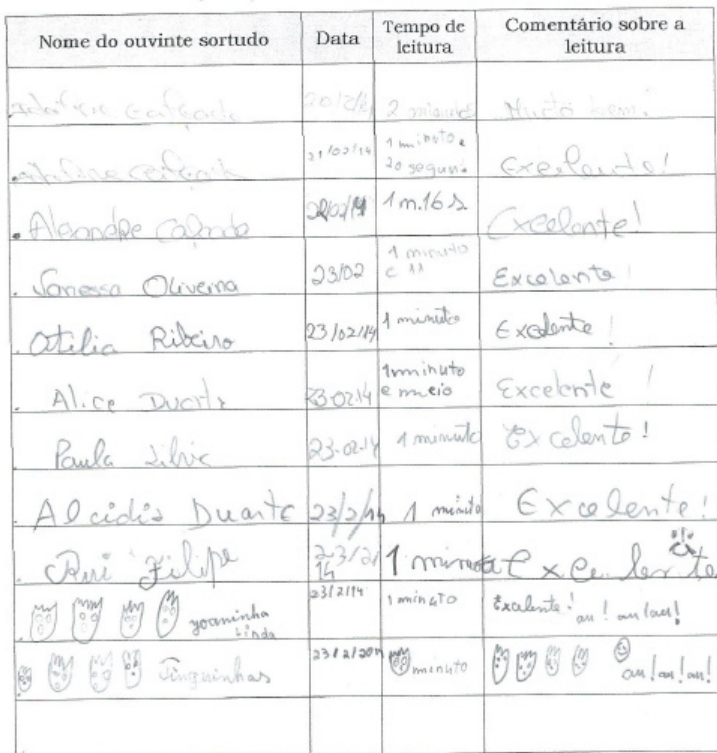 Nome do ouvinte sortudo Data Tempo de leitura Comentário sobre a leitura
2 minutos Muito bem!
21/02/14 1 minuto e 20 segun. Excelente!
Alexandre 1 m.16 s Excelente!
Vanessa Oliveira 23/02 1 minuto e 11 Excelente!
Otilia Ribeiro 23/02/14 1 minuto Excelente!
Alice Duarte 23-02.14 1 minuto e meio Excelente!
Paula Silva 23-02-14 1 minuto Excelente!
Alcidis Duarte 23/2/14 1 minuto Excelente!
Rui Filipe 23/2/14 1 minuto Excelente
yoaninha Linda 23/2/14 1 minuto Excalente! au! au!au!
Pinguinhas 23/2/2014 minuto au!au!au!